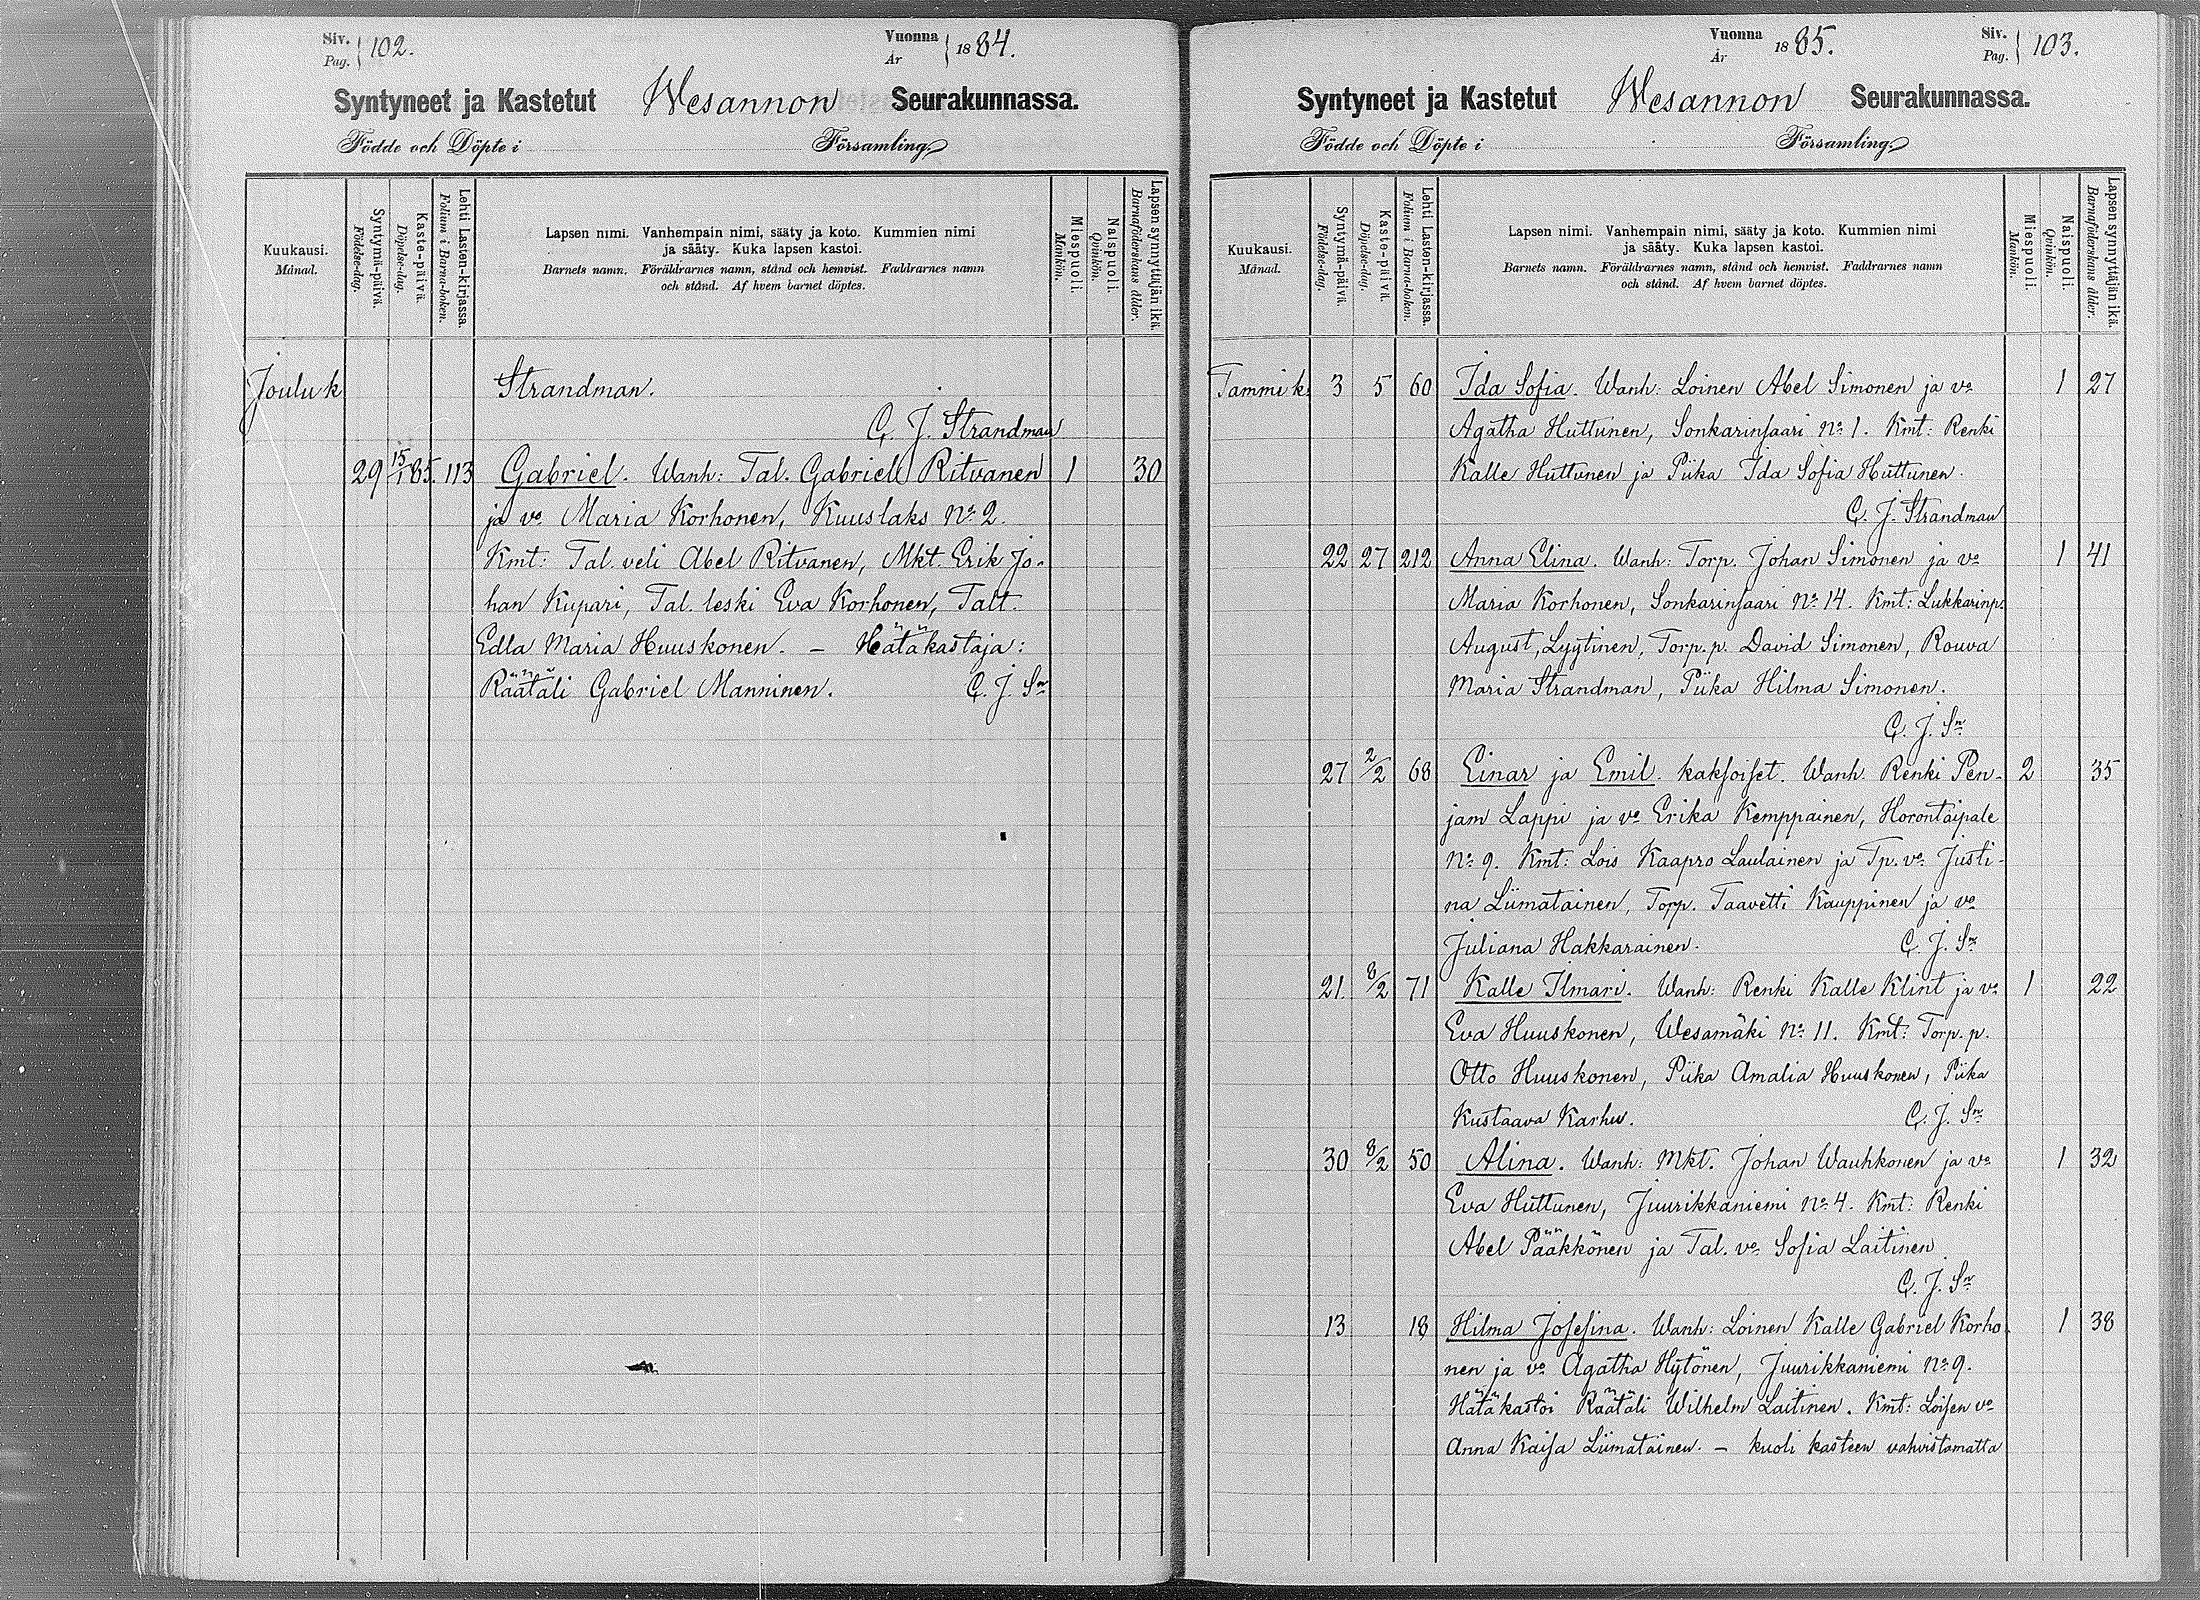 Siv. Pag. 102.
Vuonna År 1884.
Syntyneet ja Kastetut Wesannon Seurakunnassa.
Födde och Döpte i Församling.
Kuukausi. Månad.
Syntymä-päivä. Födelse-dag.
Kaste-päivä. Döpelse-dag.
Lehti Lasten-kirjassa. Folium i Barna-boken.
Lapsen nimi. Vanhempain nimi, sääty ja koto. Kummien nimi
ja sääty. Kuka lapsen kastoi.
Barnets namn. Föräldrarnes namn, stånd och hemvist. Faddrarnes namn
och stånd. Af hvem barnet döptes.
Miespuoli. Mankön.
Naispuoli. Qvinkön.
Lapsen synnyttäjän ikä. Barnaföderskans ålder.
Jouluk Strandman.
C. J. Strandman
29 15/1 85. 113 Gabriel. Wanh: Tal. Gabriel Ritvanen 1 30
ja vo Maria Korhonen, Kuuslaks No 2.
Kmt: Tal. veli Abel Ritvanen, Mkt. Erik Jo-
han Kupari, Tal. leski Eva Korhonen, Talt.
Edla Maria Huuskonen. – Hätäkastaja:
Räätäli Gabriel Manninen. C. J. Sn
Vuonna År 1885.
Siv. Pag. 103.
Syntyneet ja Kastetut Wesannon Seurakunnassa.
Födde och Döpte i Församling.
Kuukausi. Månad.
Syntymä-päivä. Födelse-dag.
Kaste-päivä. Döpelse-dag.
Lehti Lasten-kirjassa. Folium i Barna-boken.
Lapsen nimi. Vanhempain nimi, sääty ja koto. Kummien nimi
ja sääty. Kuka lapsen kastoi.
Barnets namn. Föräldrarnes namn, stånd och hemvist. Faddrarnes namn
och stånd. Af hvem barnet döptes.
Miespuoli. Mankön.
Naispuoli. Qvinkön.
Lapsen synnyttäjän ikä. Barnaföderskans ålder.
Tammik: 3 5 60 Ida Sofia. Wanh: Loinen Abel Simonen ja vo 1 27
Agatha Huttunen, Sonkarinsaari No 1. Kmt: Renki
Kalle Huttunen ja Piika Ida Sofia Huttunen.
C. J. Strandman
22 27 212 Anna Elina. Wanh: Torp. Johan Simonen ja vo 1 41
Maria Korhonen, Sonkarinsaari No 14. Kmt: Lukkarinp.
August Lyytinen, Torp. p. David Simonen, Rouva
Maria Strandman, Piika Hilma Simonen.
C. J. Sn
27 2/2 68 Einar ja Emil. kaksoiset. Wanh. Renki Pen- 2 35
jam Lappi ja vo Erika Kemppainen, Horontaipale
No 9. Kmt: Lois Kaapro Laulainen ja Tp. vo Justi-
na Liimatainen, Torp. Taavetti Kauppinen ja vo
Juliana Hakkarainen. C. J. Sn
21. 8/2 71 Kalle Ilmari. Wanh: Renki Kalle Klint ja vo 1 22
Eva Huuskonen, Wesamäki No 11. Kmt: Torp. p.
Otto Huuskonen, Piika Amalia Huuskonen, Piika
Kustaava Karhu. C. J. Sn
30 8/2 50 Alina. Wanh: Mkt. Johan Wauhkonen ja vo 1 32
Eva Huttunen, Juurikkaniemi No 4. Kmt: Renki
Abel Pääkkönen ja Tal. vo Sofia Laitinen.
C. J. Sn
13 18 Hilma Josefina. Wanh: Loinen Kalle Gabriel Korho- 1 38
nen ja vo Agatha Hytönen, Juurikkaniemi No 9.
Hätäkastoi Räätäli Wilhelm Laitinen. Kmt: Loisen vo
Anna Kaisa Liimatainen. – kuoli kasteen vahvistamatta